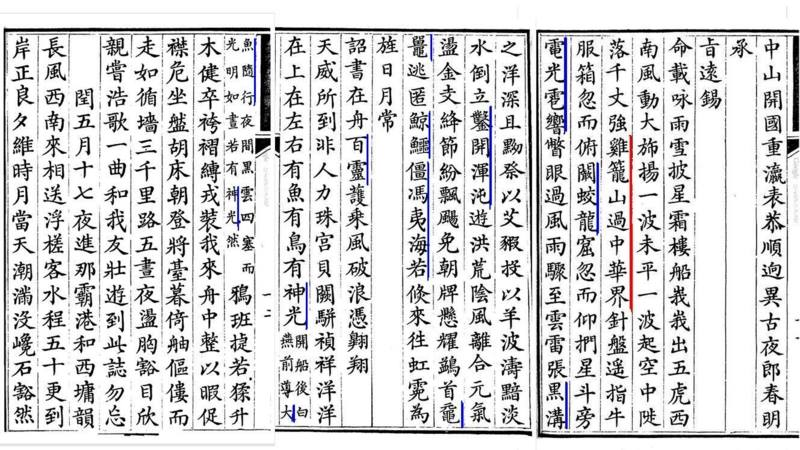 中山開國重瀛表恭順逈異古夜郎春明
承
旨遠錫
命載咏雨雪披星霜樓船峩峩出五虎西
南風動大斾揚一波未平一波起空中陡
落千丈強雞籠山過中華界針盤遥指牛
服箱忽而俯闞蛟龍窟忽而仰捫星斗旁
電光雹響瞥眼過風雨驟至雲雷張黑溝
之洋深且黝祭以艾豭投以羊波濤黯淡
水倒立鑿開渾沌遊洪荒陰風離合元氣
盪金支絳節紛飄颺免朝牌懸耀鷁首黿
鼉逃匿鯨鱷僵馮夷海若倏來往虹霓為
旌日月常
詔書在舟百靈護乘風破浪憑翺翔
天威所到非人力珠宮貝闕駢禎祥洋洋
在上在左右有魚有鳥有神光開船後白
燕前導大
魚隨行夜間黑雲四塞而
光明如晝若有神光然鴉班捷若猱升
木健卒袴褶縛戎裝我來舟中整以暇促
襟危坐盤胡床朝登將臺暮倚舳傴僂而
走如循墻三千里路五晝夜盪胸豁目欣
親嘗浩歌一曲和我友壯遊到此誌勿忘
閏五月十七夜進那霸港和西墉韻
長風西南來相送浮槎客水程五十更到
岸正良夕維時月當天潮滿没巉石豁然